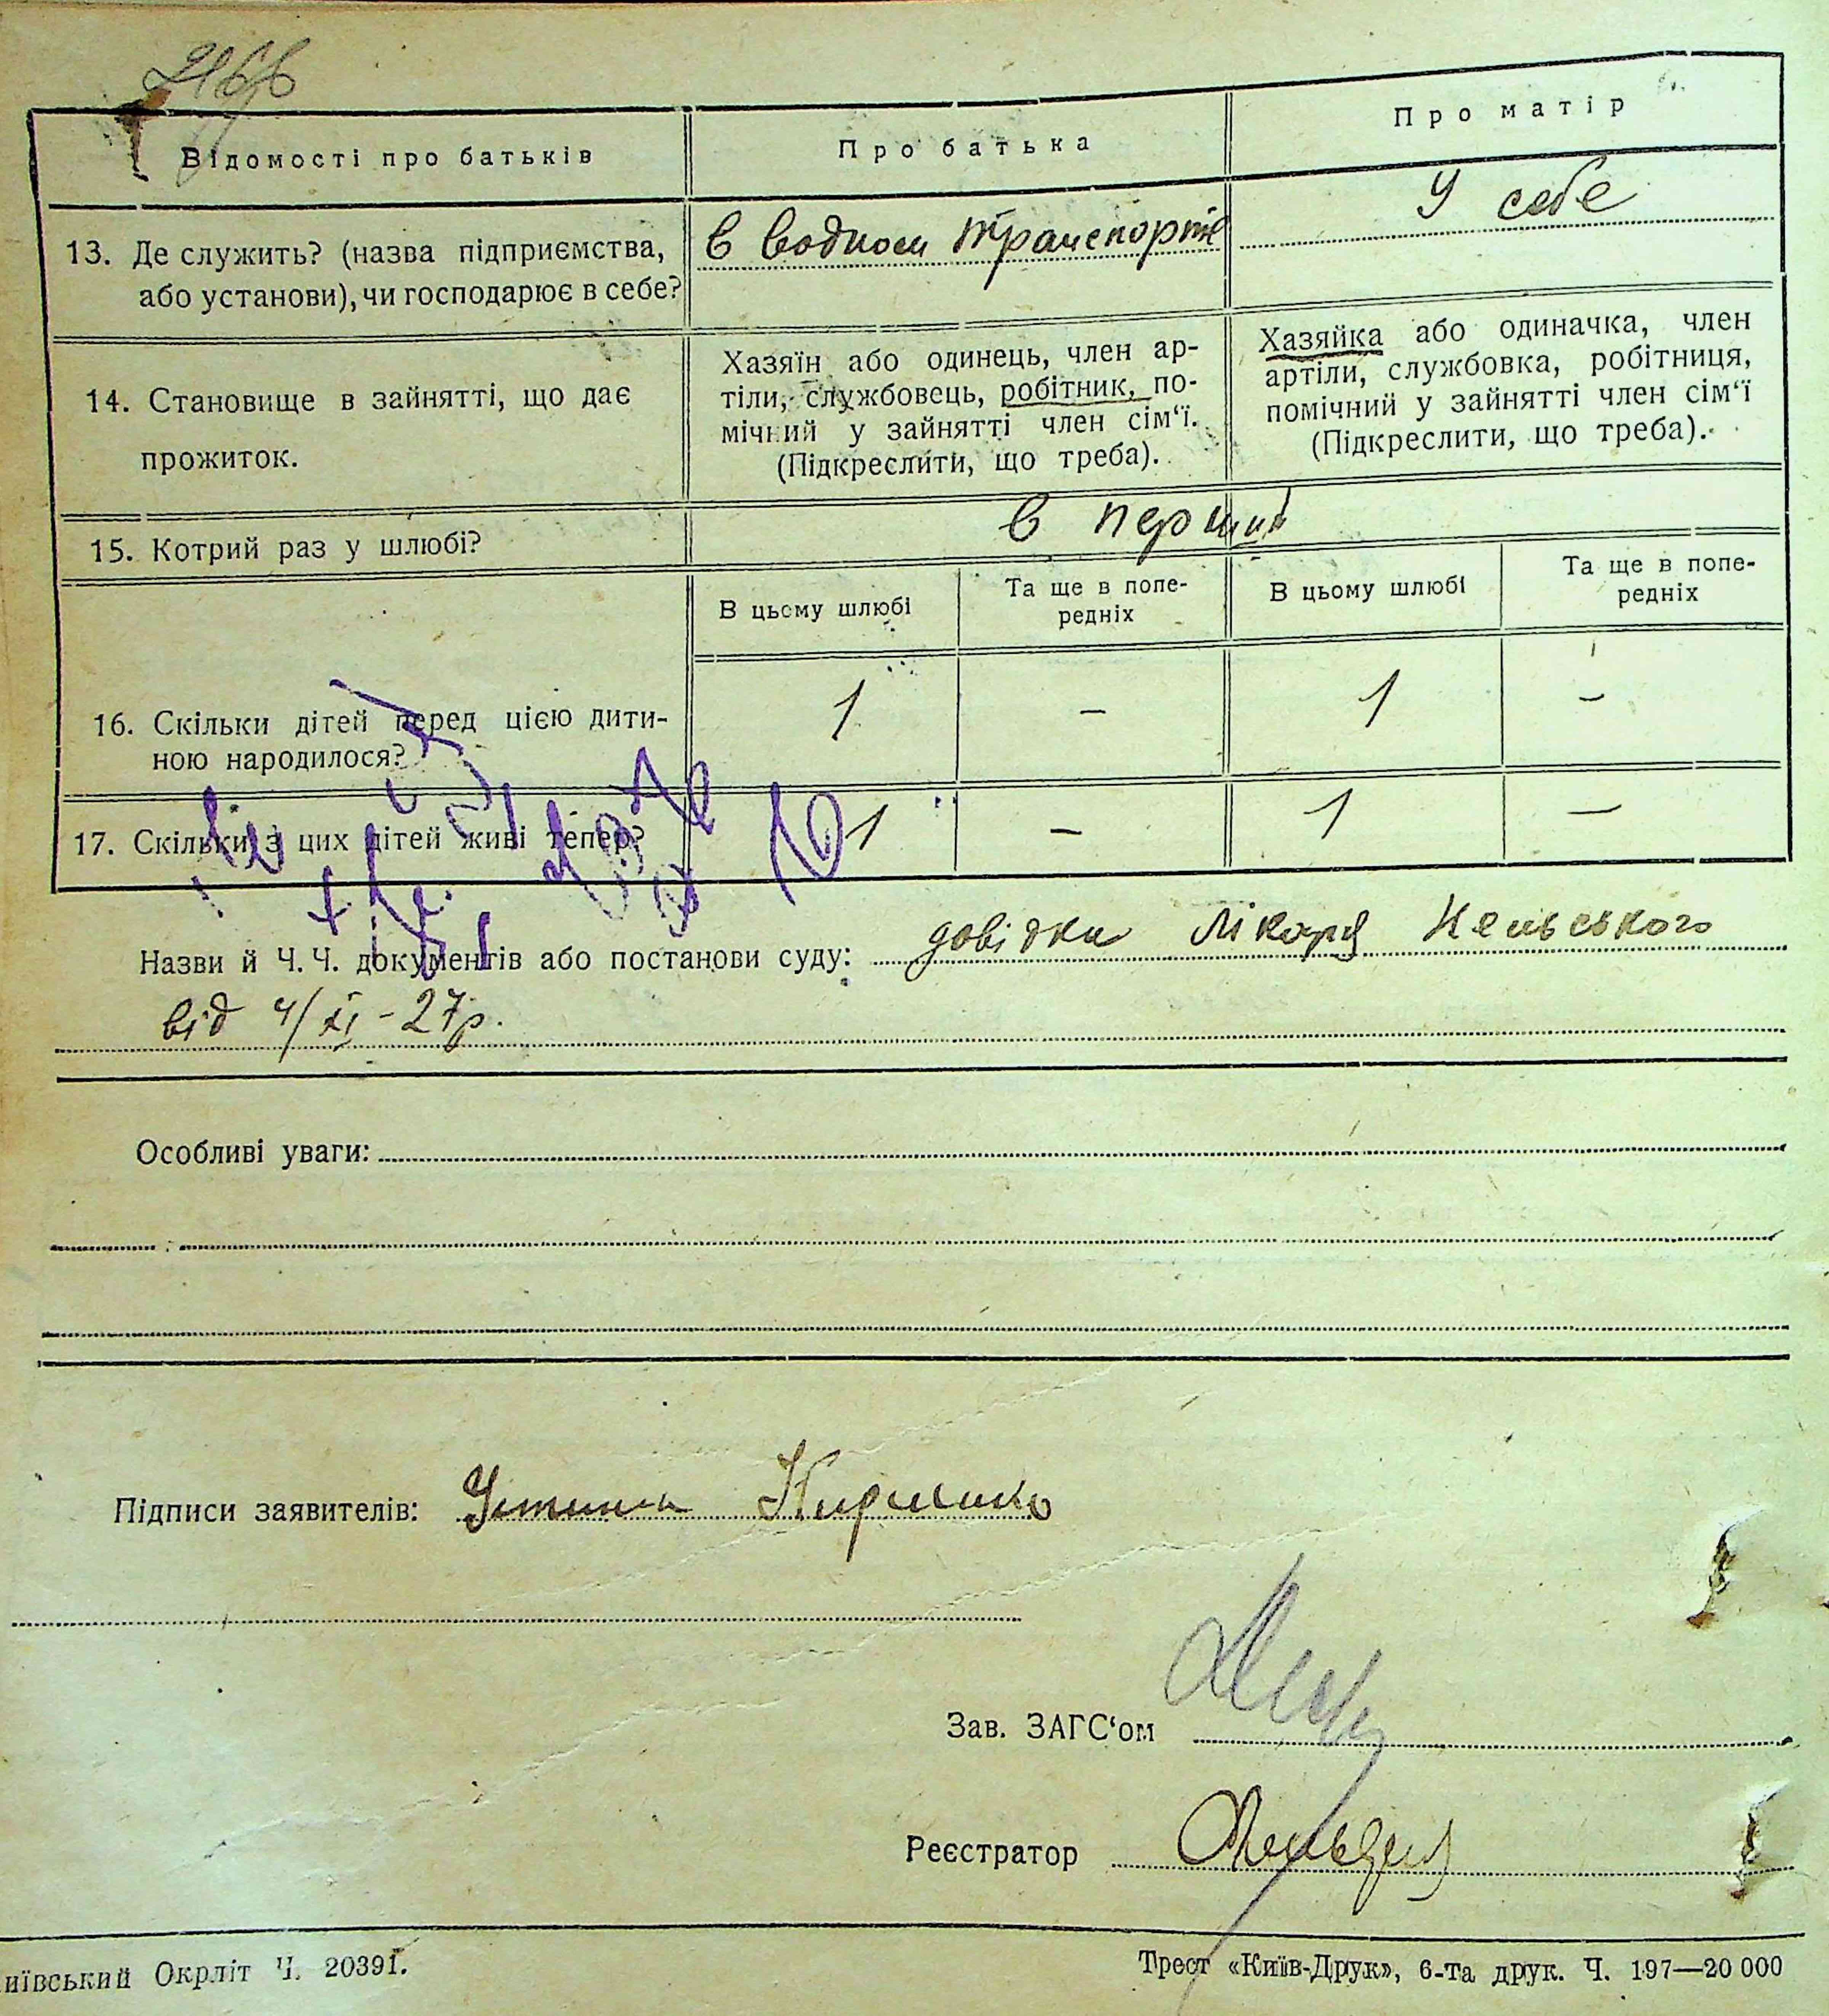 Відомості про батьків
Про батька
Про матір
13. Де служить? (назва підприємства,
або установи), чи господарює в себе?
в водном транспорте
У себе
14. Становище в зайнятті, що дає
прожиток.
Хазяїн або одинець, член ар-
тіли, службовець, робітник, по-
мічний у зайнятті член сім‘ї.
(Підкреслити, що треба).
Хазяйка або одиначка, член
артіли, службовка, робітниця,
помічний у зайнятті член сім‘ї
(Підкреслити, що треба).
15. Котрий раз у шлюбі?
в перший
В цьому шлюбі
Та ще в попе-
редніх
В цьому шлюбі
Та ще в попе-
редніх
16. Скільки дітей перед цією дити-
ною народилося?
1 – 1 –
17. Скільки з цих дітей живі тепер?
1 – 1 –
Назви й Ч. Ч. документів або постанови суду: довідка лікаря
від 4/XI - 27р.
Особливі уваги:
Підписи заявителів: Устина
Зав. ЗАГС‘ом
Реєстратор
иївський Окрліт Ч. 20391.
Трест «Київ-Друк», 6-та друк. Ч. 197—20 000